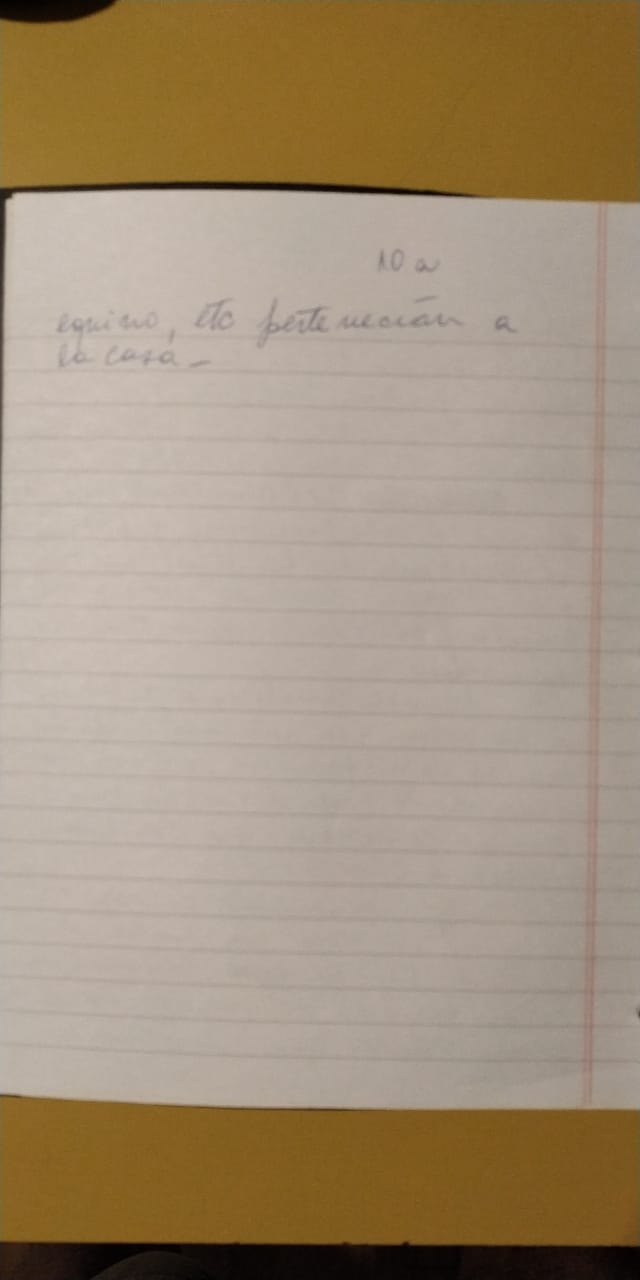 10 a
equino, etc pertenecían a
la casa -